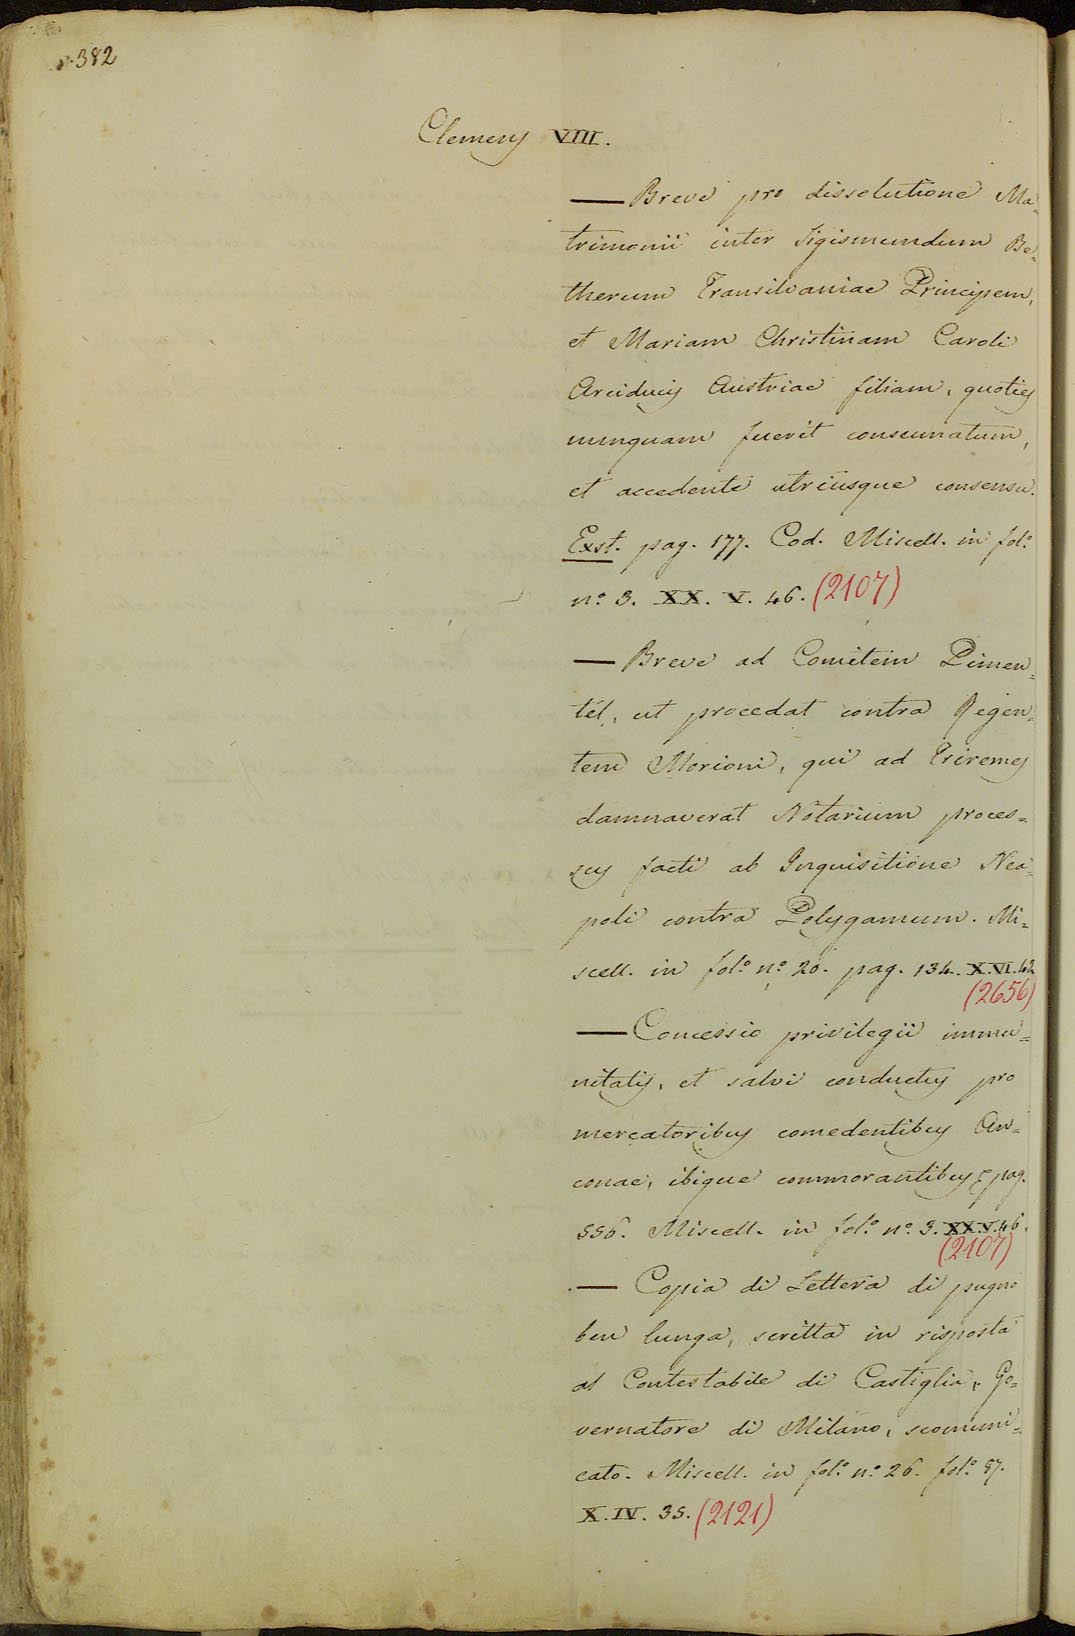 382
Clemens VIII.
— Breve pro dissolutione Ma=
trimonii inter Sigismundum Ba=
therum Transilvaniae Principem,
et Mariam Christinam Caroli
Arciducis Austriae filiam, quoties
nunquam fuerit consumatum,
et accedente utriusque consensu.
Exst. pag. 177. Cod. Miscell. in fol.º
n.º 3. XX. V. 46. (2107)
— Breve ad Comitem Pimen=
tél, ut procedat contra Regen=
tem Morioni, qui ad Triremes
damnaverat Notarium proces=
sus facti ab Inquisitione Nea=
poli contra Polygamum. Mi=
scell. in fol.º n.º 20. pag. 134. X.VI.42
(2656)
— Concessio privilegii immu=
nitatis, et salvi conductus pro
mercatoribus comedentibus An=
conae, ibique commorantibus pag.
556. Miscell. in fol.º n.º 3. XX.V.46.
(2107)
— Copia di Lettera di pugno
ben lunga, scritta in risposta
al Contestabile di Castiglia, Go=
vernatore di Milano, scomuni=
cato. Miscell. in fol.º n.º 26. fol.º 87.
X. IV. 35. (2121)